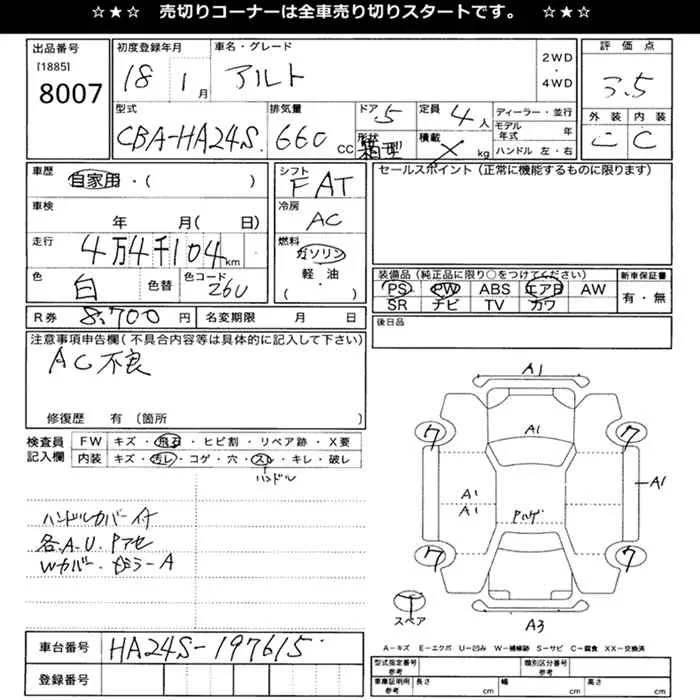 ☆★☆ 売切りコーナーは全車売り切りスタートです。 ☆★☆
出品番号
[1885]
8007
初度登録年月
18 1月
車名・グレード
アルト
2WD
・
4WD
評価点
3.5
外装 内装
C C
型式
CBA-HA24S
排気量
660 cc
ドア 5
形状
箱型
定員 4人
積載 × kg
ディーラー・並行
モデル年式 年
ハンドル 左・右
車歴
自家用・( )
車検
年 月( 日)
走行
4万4千104km
色
白
色替
色コード
26U
シフト
FAT
冷房
AC
燃料
ガソリン
軽・油
( )
セールスポイント (正常に機能するものに限ります)
装備品 (純正品に限り○をつけてください)
PS PW ABS エアB AW
SR ナビ TV カワ
新車保証書
有・無
R券 8,700円
名変期限 月 日
後日品
注意事項申告欄(不具合内容等は具体的に記入して下さい)
AC不良
修復歴 有 (箇所 )
検査員
記入欄
FW キズ・飛石・ヒビ割・リペア跡・X要
内装 キズ・汚レ・コゲ・穴・スレ・キレ・破レ
ハンドル
ハンドルカバー付
各A.U.Pアセ
Wカバー・ガラーA
A1
ワ ワ
A1
A1
A1
A1
ワ ワ
スペア
A3
A-キズ E-エクボ U-凹み W-補修跡 S-サビ C-腐食 XX-交換済
車台番号 HA24S-197615
登録番号
型式指定番号
参考
類別区分番号
参考
車庫証明用
参考
長さ cm 幅 cm 高さ cm